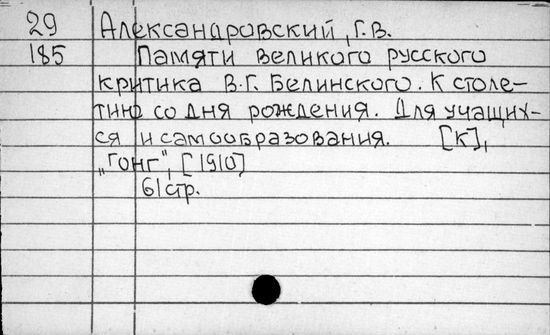 29 Александровский, Г.В.
185 Памяти великого русского
критика В.Г. Белинского. К столе-
тию со дня рождения. Для учащих-
ся и самообразования. [К],
„Гонг", [1910]
61 стр.